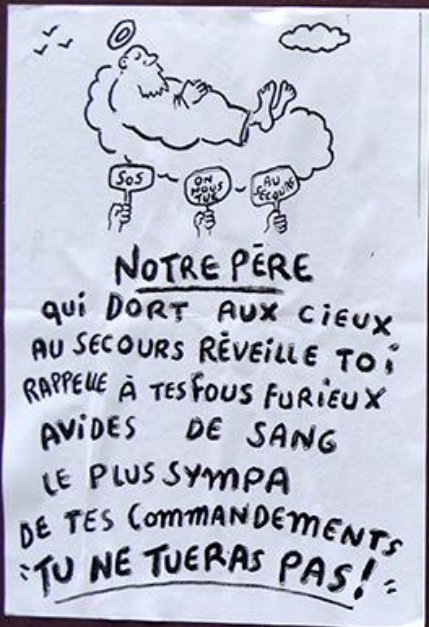 SOS
ON
NOUS
TUE
AU
SECOURS
NOTRE PÈRE
qui DORT AUX CIEUX
AU SECOURS RÉVEILLE TOi
RAPPELLE À TES FOUS FURIEUX
AVIDES DE SANG
LE PLUS SYMPA
DE TES COMMANDEMENTS
"TU NE TUERAS PAS!"